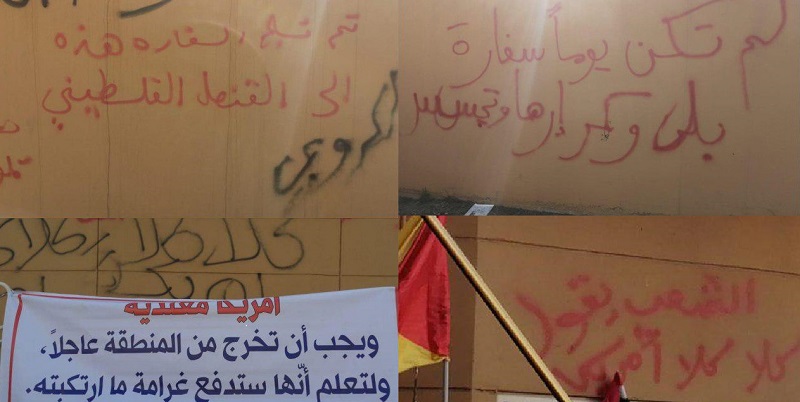 تم تسليم السفاره هذه
الى القنصل الفلسطيني
لم تكن يوماً سفارة
بل وكر إرها وتجسس
كلا كلا
أمريكا معتدية
ويجب أن تخرج من المنطقة عاجلاً،
ولتعلم أنّها ستدفع غرامة ما ارتكبته.
الشعب يقول
كلا كلا أمريكا